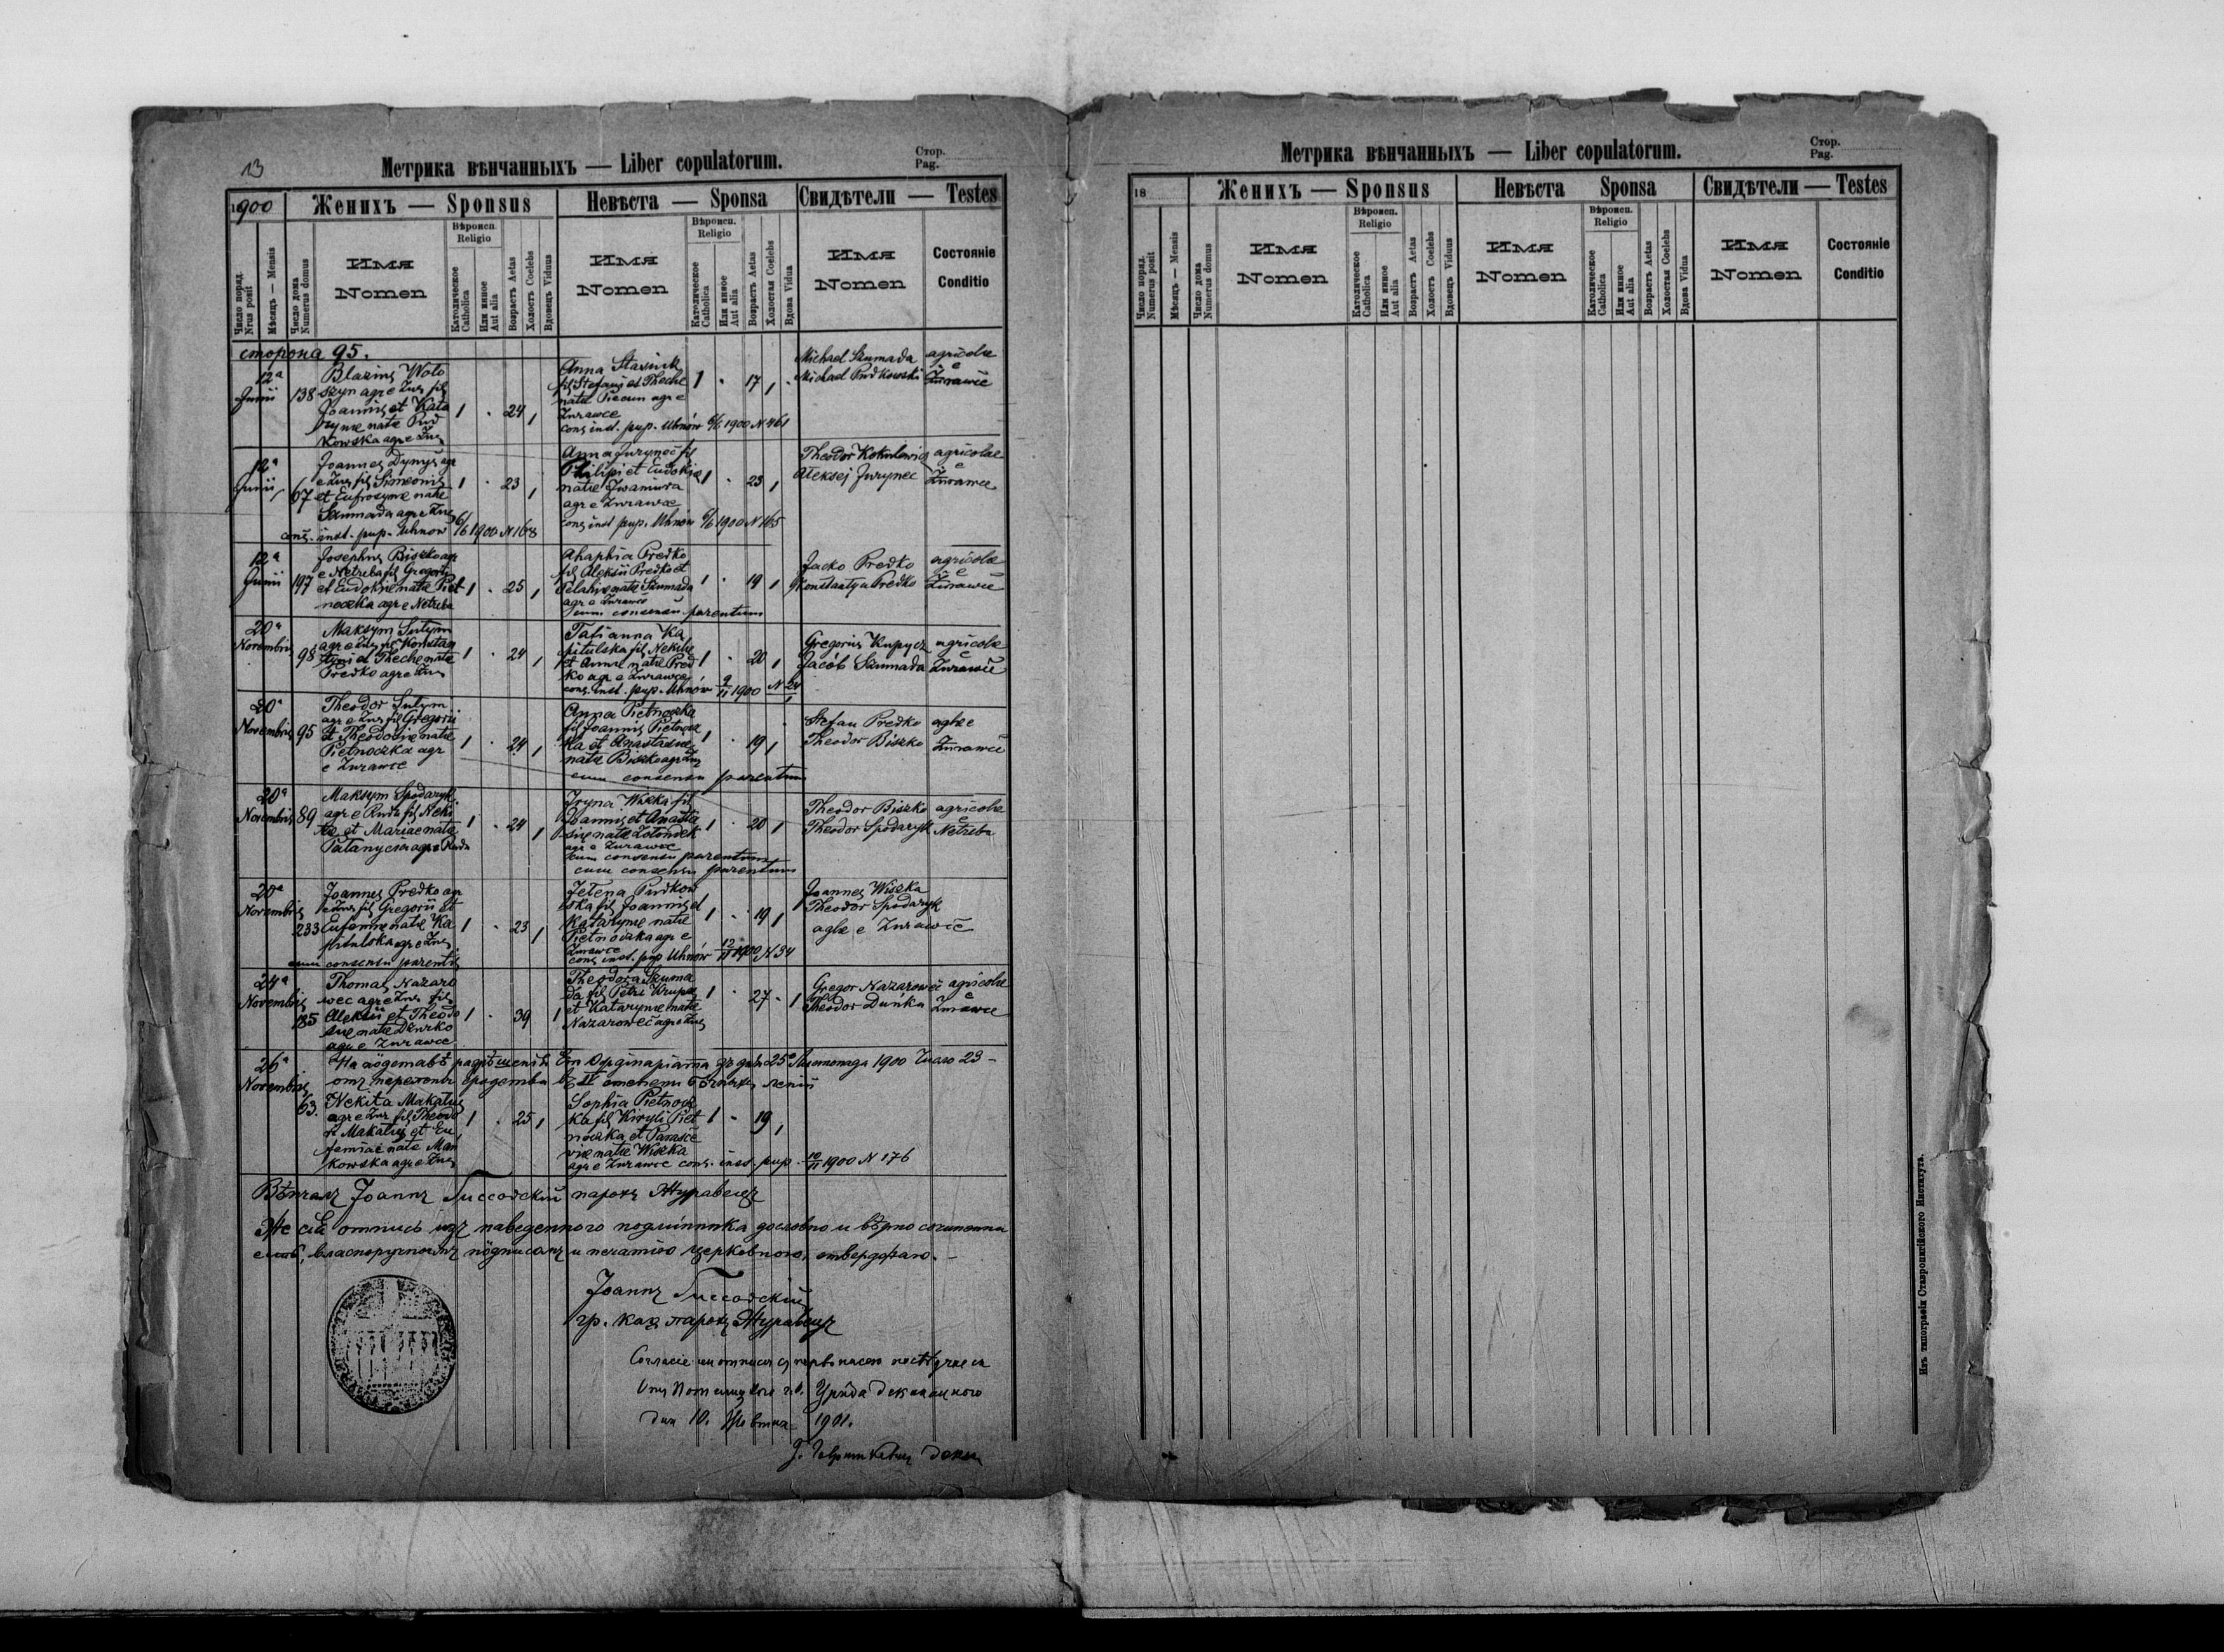 13
Метрика вѣнчанныхъ — Liber copulatorum.
Стор.
Pag.
1900
Женихъ — Sponsus
Невѣста — Sponsa
Свидѣтели — Testes
Число поряд.
Nrus posit
Мѣсяцъ — Mensis
Число дома
Numerus domus
Имя
Nomen
Вѣроисп.
Religio
Католическое
Catholica
Или иное
Aut alia
Возрастъ Aetas
Холостъ Coelebs
Вдовецъ Viduus
Имя
Nomen
Вѣроисп.
Religio
Католическое
Catholica
Или иное
Aut alia
Возрастъ Aetas
Холостая Coelebs
Вдова Vidua
Имя
Nomen
Состояніе
Conditio
сторона 95.
12ª
Junii
138
Blazius Woło
szyn agr e Żur fil
Joannis et Kata
rynae natae Pud
kowska agr e Żur
1 . 24 1
Anna Stasiuk
fil Stefani et Theclae
natae Piecun agr e
Żurawce
cons. inst. pup. Uhnów 6/6 1900 N 461
1 . 17 1 .
Michael Szumada
Michael Pudkowski
agricolae
e
Żurawce
12ª
Junii
67
Joannes Dymys agr
e Żur fil Simeonis
et Eufrosynae natae
Szumada agr e Żur
cons. inst. pup. Uhnow 6/6 1900 N 168
1 . 23 1
Anna Juryneć fil
Philipi et Eudokiae
natae Iwaniura
agr e Żurawce
cons inst pup. Uhnów 6/6 1900 N 165
1 . 23 1
Theodor Kokulowicz
Aleksej Jurynec
agricolae
e
Żurawce
12ª
Junii
197
Josephus Biszko agr
e Netreba fil Gregorii
et Eudokiae natae Piet
noczka agr e Netreba
1 . 25 1
Ahaphia Predko
fil Aleksii Predko et
Pelahiae natae Szumada
agr e Żurawce
cum consensu parentum
1 . 19 1
Jacko Predko
Konstantyn Predko
agricolae
e
Żurawce
20ª
Novembris
98
Maksym Sulym
agr e Żur fil Konstan
tyni et Theclae natae
Predko agr e Żur
1 . 24 1
Tatianna Ka
pitulska fil Nekitae
et Annae natae Pred
ko agr e Żurawce
cons. inst. pup. Uhnów 9/11 1900 N 24/1
1 . 20 1
Gregorius Kupycz
Jacób Szumada
agricolae
e
Żurawce
20ª
Novembris
95
Theodor Sulym
agr e Żur fil Gregorii
et Theodosiae natae
Pietnoczka agr
e Żurawce
1 . 24 1
Anna Pietnoczka
fil Joannis Pietnocz
ka et Anastasiae
natae Biszko agr Żur
cum consensu parentum
1 . 19 1
Stefan Predko
Theodor Biszko
aglae
Żurawce
20ª
Novembris
89
Maksym Spodaryk
agr e Ruda fil Neki
tae et Mariae natae
Patanycza agr e Ruda
1 . 24 1
Iryna Wiszka fil
Joannis et Anasta
siae natae Zotoniek
agr e Żurawce
cum consensu parentum
cum consensu parentum
1 . 20 1
Theodor Biszko
Theodor Spodaryk
agricolae
e
Netreba
20ª
Novembris
233
Joannes Predko agr
e Żur fil Gregorii et
Eufemiae natae Ka
pitulska agr e Żur
cum consensu parentis
1 . 23 1
Jełena Pudkow
ska fil Joannis et
Katarynae natae
Pietnoczka agr e
Żurawce
cons inst. pup Uhnów 12/11 1900 N 34
1 . 19 1
Joannes Wiszka
Theodor Spodaryk
aglae e Żurawce
24ª
Novembris
185
Thomas Nazaro
wec agr e Żur fil
Aleksii et Theodo
siae natae Dżurko
agr e Żurawce
1 . 39 1
Theodora Szuma
da fil Petri Krupa
et Katarynae natae
Nazaroweć agr e Żur
1 . 27 . 1
Gregor Nazaroweć
Theodor Duńka
agricolae
e
Żurawce
26ª
Novembris
63.
1900 Число 23 –
Nekita Makaluś
agr e Żur fil Theodo
ri Makaluś et Eu
femiae natae Man
kowska agr e Żur
1 . 25 1
Sophia Pietnocz
ka fil Kiryli Piet
noczka et Parasce
viae natae Wiszka
agr e Żurawce cons. inst. pup. 10/11 1900 N 176
1 . 19 1
Вѣнчалъ Іоаннъ Гиссовскій парохъ Журавецъ
Же сей отпись изъ наведенного подлинника дословно и вѣрно
власноручнымъ подписомъ и печатію церковною, ствердждаю. –
Іоаннъ Гиссовскій
гр. каѳ. парохъ Журавецъ
дня 10. 1901.
Метрика вѣнчанныхъ — Liber copulatorum.
Стор.
Pag.
18
Женихъ — Sponsus
Невѣста Sponsa
Свидѣтели — Testes
Число поряд.
Numerus posit
Мѣсяцъ — Mensis
Число дома
Numerus domus
Имя
Nomen
Вѣроисп.
Religio
Католическое
Catholica
Или иное
Aut alia
Возрастъ Aetas
Холостъ Coelebs
Вдовецъ Viduus
Имя
Nomen
Вѣроисп.
Religio
Католическое
Catholica
Или иное
Aut alia
Возрастъ Aetas
Холостая Coelebs
Вдова Vidua
Имя
Nomen
Состояніе
Conditio
Изъ типографіи Ставропигійского Института.